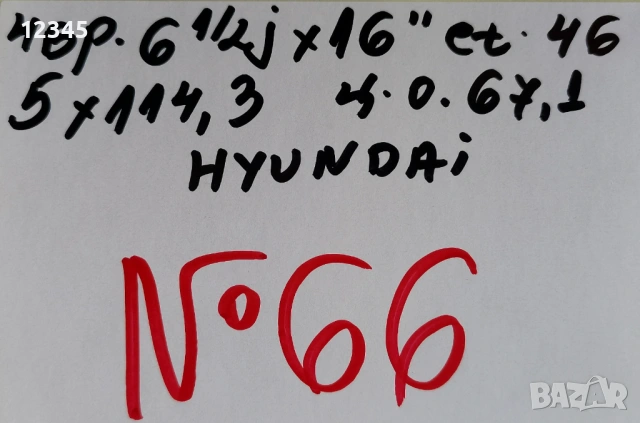 12345
4бр. 6 1/2j x 16" et. 46
5 x 114,3 ц.о. 67,1
HYUNDAi
№ 66
BAZAR